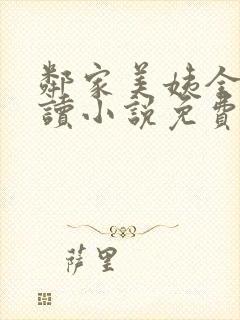 鄰家美姨全
讀小說免費
萨里